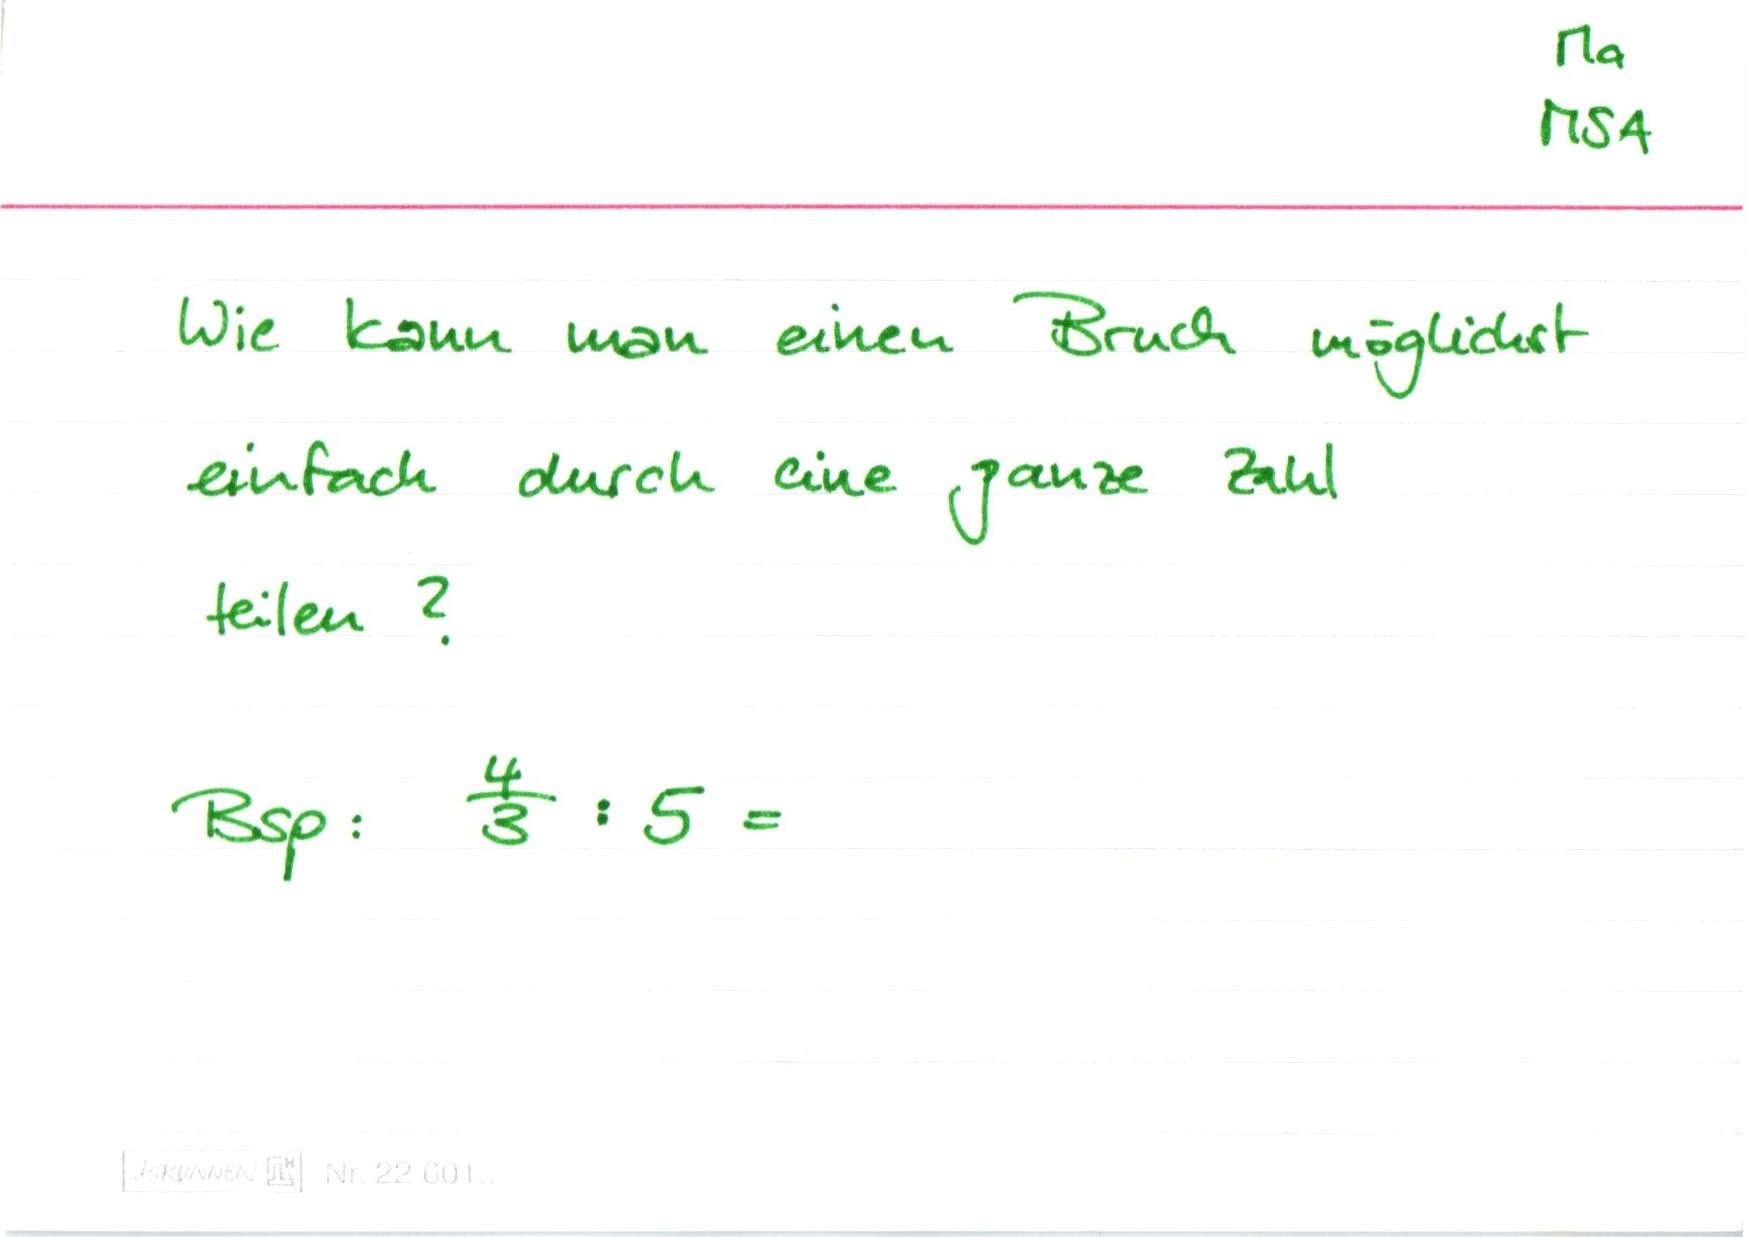 Ma
MSA
Wie kann man einen Bruch möglichst
einfach durch eine ganze Zahl
teilen ?
Bsp: 4/3 : 5 =
BRUNNEN Nr. 22 601..